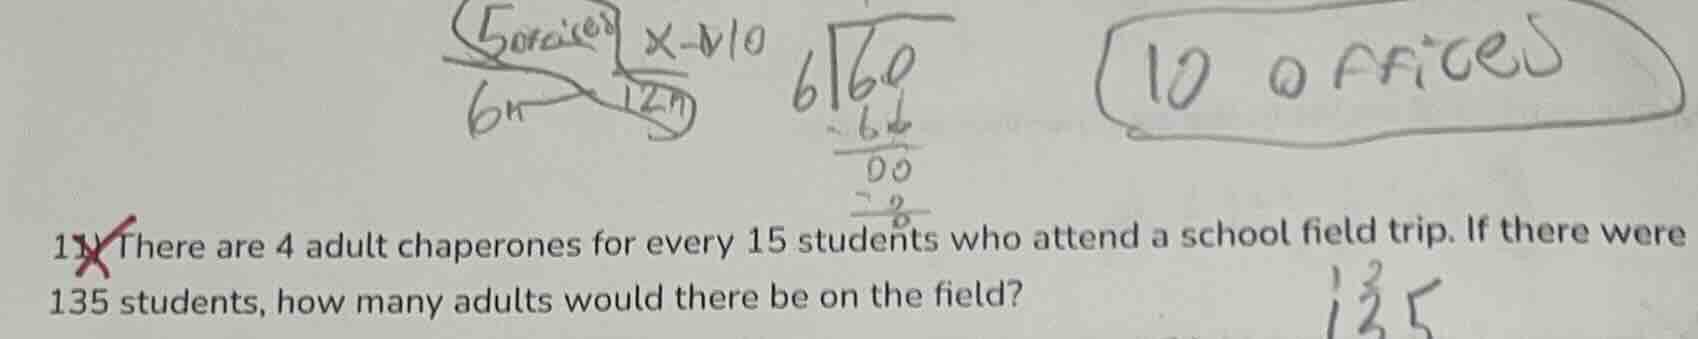 5 offices x 10
6n 12n
6 60
- 6
00
- 0
0
10 offices
11) There are 4 adult chaperones for every 15 students who attend a school field trip. If there were
135 students, how many adults would there be on the field?
135